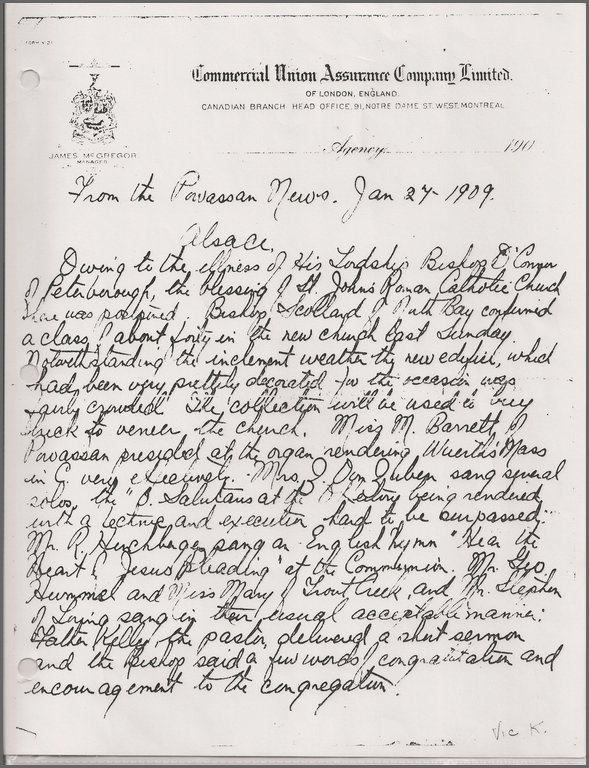 Commercial Union Assurance Company Limited.
OF LONDON, ENGLAND.
CANADIAN BRANCH HEAD OFFICE, 91, NOTRE DAME ST. WEST, MONTREAL
JAMES McGREGOR
MANAGER
Agency 190
From the Powassan News. Jan 27 - 1909.
Alsace.
Owing to the illness of His Lordship Bishop O'Connor
of Peterborough, the blessing of St. John's Roman Catholic Church
here was postponed. Bishop Scollard of North Bay confirmed
a class of about forty in the new church last Sunday.
Notwithstanding the inclement weather the new edifice, which
had been very prettily decorated for the occasion was
fairly crowded. The collection will be used to buy
brick to veneer the church. Miss M. Barrett, of
Powassan presided at the organ rendering, Mass
in G. very effectively. Mrs. sang several
solos, the "O. Salutaris at the Offertory being rendered
with a and execution hard to be surpassed.
Mr. P. Hirchberger sang an English hymn "Hear the
Heart of Jesus Pleading" at the Communion. Mr. Geo
Hummel and Miss Mary of Trout Creek, and Mr. Stephen
of Loring sang in their usual acceptable manner.
Father Kelley the pastor, delivered a short sermon
and the Bishop said a few words of congratulation and
encouragement to the congregation.
Vic K.